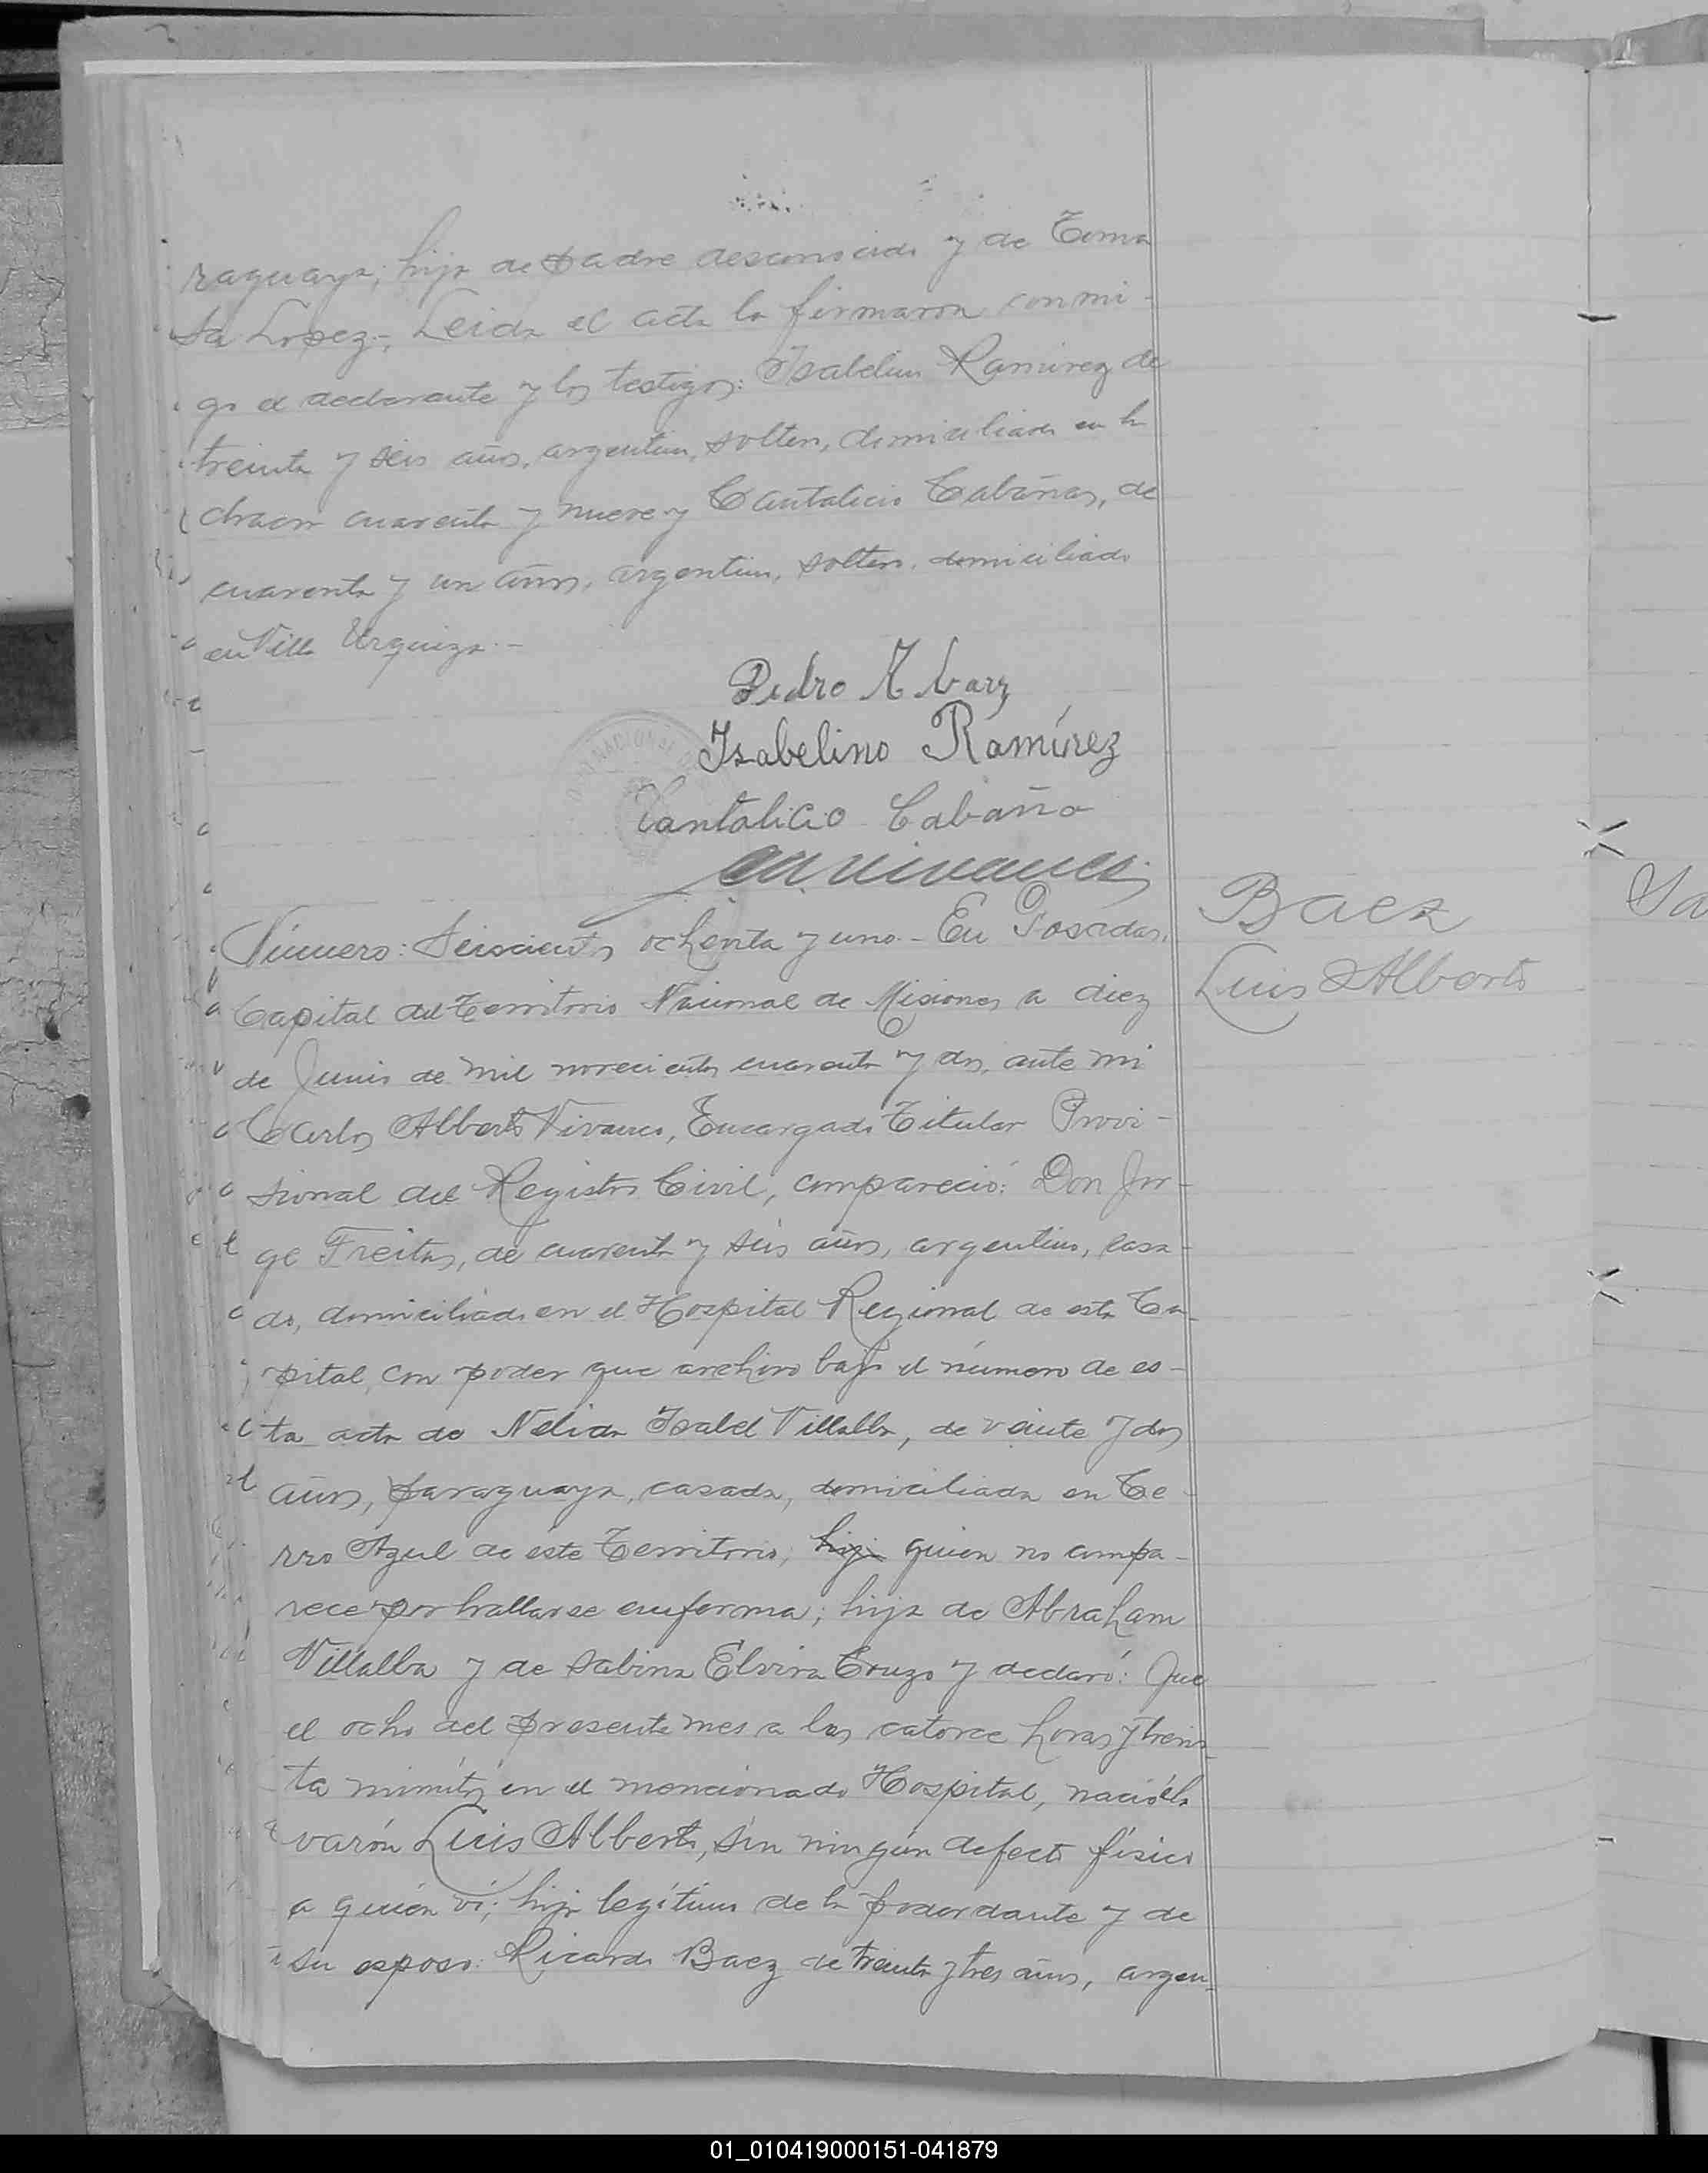 raguaya; hija de padre desconocido y de Toma
sa Lopez.- Leida el acta la firmaron conmi-
go el declarante y los testigos: Isabelino Ramirez de
treinta y seis años, argentino, soltero, domiciliado en la
chacra cuarenta y nueve y Cantalicio Cabañas, de
cuarenta y un años, argentino, soltero, domiciliado
en Villa Urquiza.-
Pedro
Isabelino Ramírez
Cantalicio Cabaña
Número: Seiscientos ochenta y uno.- En Posadas,
Baez
Capital del Territorio Nacional de Misiones a diez
Luis Alberto
de Junio de mil novecientos cuarenta y dos, ante mi
Carlos Alberto Vivanco, Encargado Titular Provi-
sional del Registro Civil, compareció: Don Jor-
ge Freitas, de cuarenta y seis años, argentino, casa-
do, domiciliado en el Hospital Regional de esta Ca-
pital, con poder que archivo bajo el número de es-
ta acta de Nelida Isabel Villalba, de veinte y dos
años, paraguaya, casada, domiciliada en Ce-
rro Azul de este Territorio, hija quien no compa-
rece por hallarse enferma; hija de Abraham
Villalba y de Sabina Elvira y declaró: Que
el ocho del presente mes a las catorce horas y trein-
ta minutos en el mencionado Hospital, nació el
varón Luis Alberto, sin ningún defecto físico
a quien ví; hijo legítimo de la poderdante y de
su esposo: Ricardo Baez de treinta y tres años, argen-
01_010419000151-041879